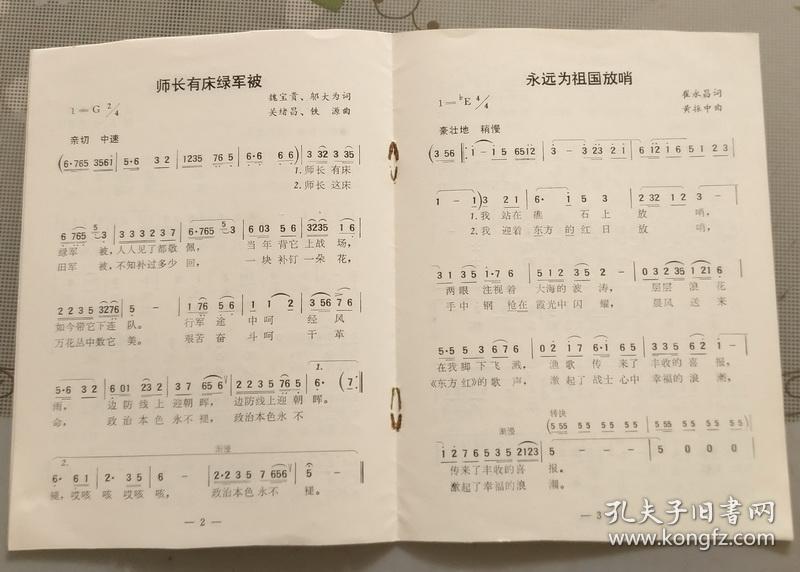 师长有床绿军被
魏宝贵、邬大为词
1=G 2/4
吴绪昌、铁 源曲
亲切 中速
(6·765 3561 | 5·6 3 2 | 1235 76 5 | 6·6 6 6) | 3 32 3 35 |
1.师长 有床
2.师长 这床
6 765 5 3 | 3 3 3 2 3 7 | 6·7 6 5 3 2 | 6 03 5 6 | 3235 1 6 |
绿军 被,人人见了都敬 佩, 当年 背它 上战 场,
旧军 被,不知补过多少 回, 一块 补钉 一朵 花,
2 2 3 5 3276 | 5 - | 1 76 5 6 | 1 1 2 | 3 56 7 6 |
如今带它下连 队。 行军 途 中呵 经 风
万花丛中数它 美。 艰苦 奋 斗呵 干 革
1.
5·6 3 2 | 6 01 23 2 | 3 7 65 6 | 2 2 3 5 76 5 | 6· (7) :|
雨, 边防线上 迎朝 晖, 边防线上迎朝 晖。
命, 政治本色 永不 褪, 政治本色永 不
渐慢
2.
6· 6 1 | 2· 3 2 | 7·6 5 6 | 2·2 3 5 7 656 | 5 - ‖
褪,哎咳 咳 哎咳 咳, 政治本色永不 褪。
— 2 —
永远为祖国放哨
崔永昌词
1=♭E 4/4
黄振中曲
豪壮地 稍慢
(3 56 |: 1 - 1 5 6512 | 3 - 3 23 21 | 6 12 16 5 1 5 1 23 |
1 - 1) 3 2 1 | 6· 1 5 3 | 2 32 12 3 - |
1.我 站在 礁 石上 放 哨,
2.我 迎着 东方 的 红日 放 哨,
3 1 3 5 1·7 6 | 5 1 3 5 2 - | 0 3 2 35 1 21 6 |
两眼 注视着 大海的 波 涛, 层层 浪 花
手中 钢 枪在 霞光中 闪 耀, 晨风 送 来
5·5 5 3 6 7 6 | 6 1 2 3 6 7 6 | 3 3 5 6 2 1 - |
在我 脚 下 飞 溅, 渔 歌 传 来 了 丰收的 喜 报,
《东方 红》的 歌 声, 激 起了 战士 心中 幸福的 浪 潮,
渐慢
转快
(5 55 55 55 55 | 5 55 55 55 55)
1 2 7 6 5 3 5 2123 | 5 - - - | 5 0 0 0 :|
传来了丰收的喜 报。
激起了幸福的浪 潮。
— 3
孔夫子旧书网
kongfz.com